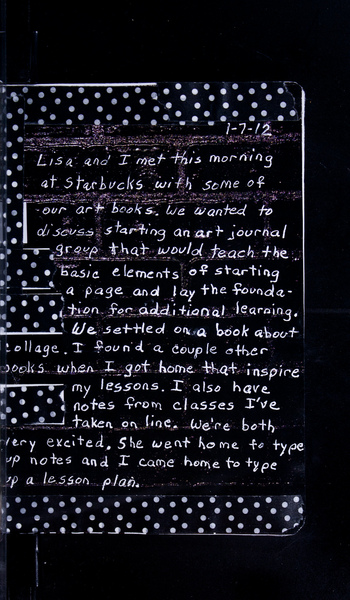 1-7-12
Lisa and I met this morning
at Starbucks with some of
our art books. We wanted to
discuss starting an art journal
group that would teach the
basic elements of starting
a page and lay the founda-
tion for additional learning.
We settled on a book about
collage. I found a couple other
books when I got home that inspire
my lessons. I also have
notes from classes I've
taken on line. We're both
very excited. She went home to type
up notes and I came home to type
up a lesson plan.